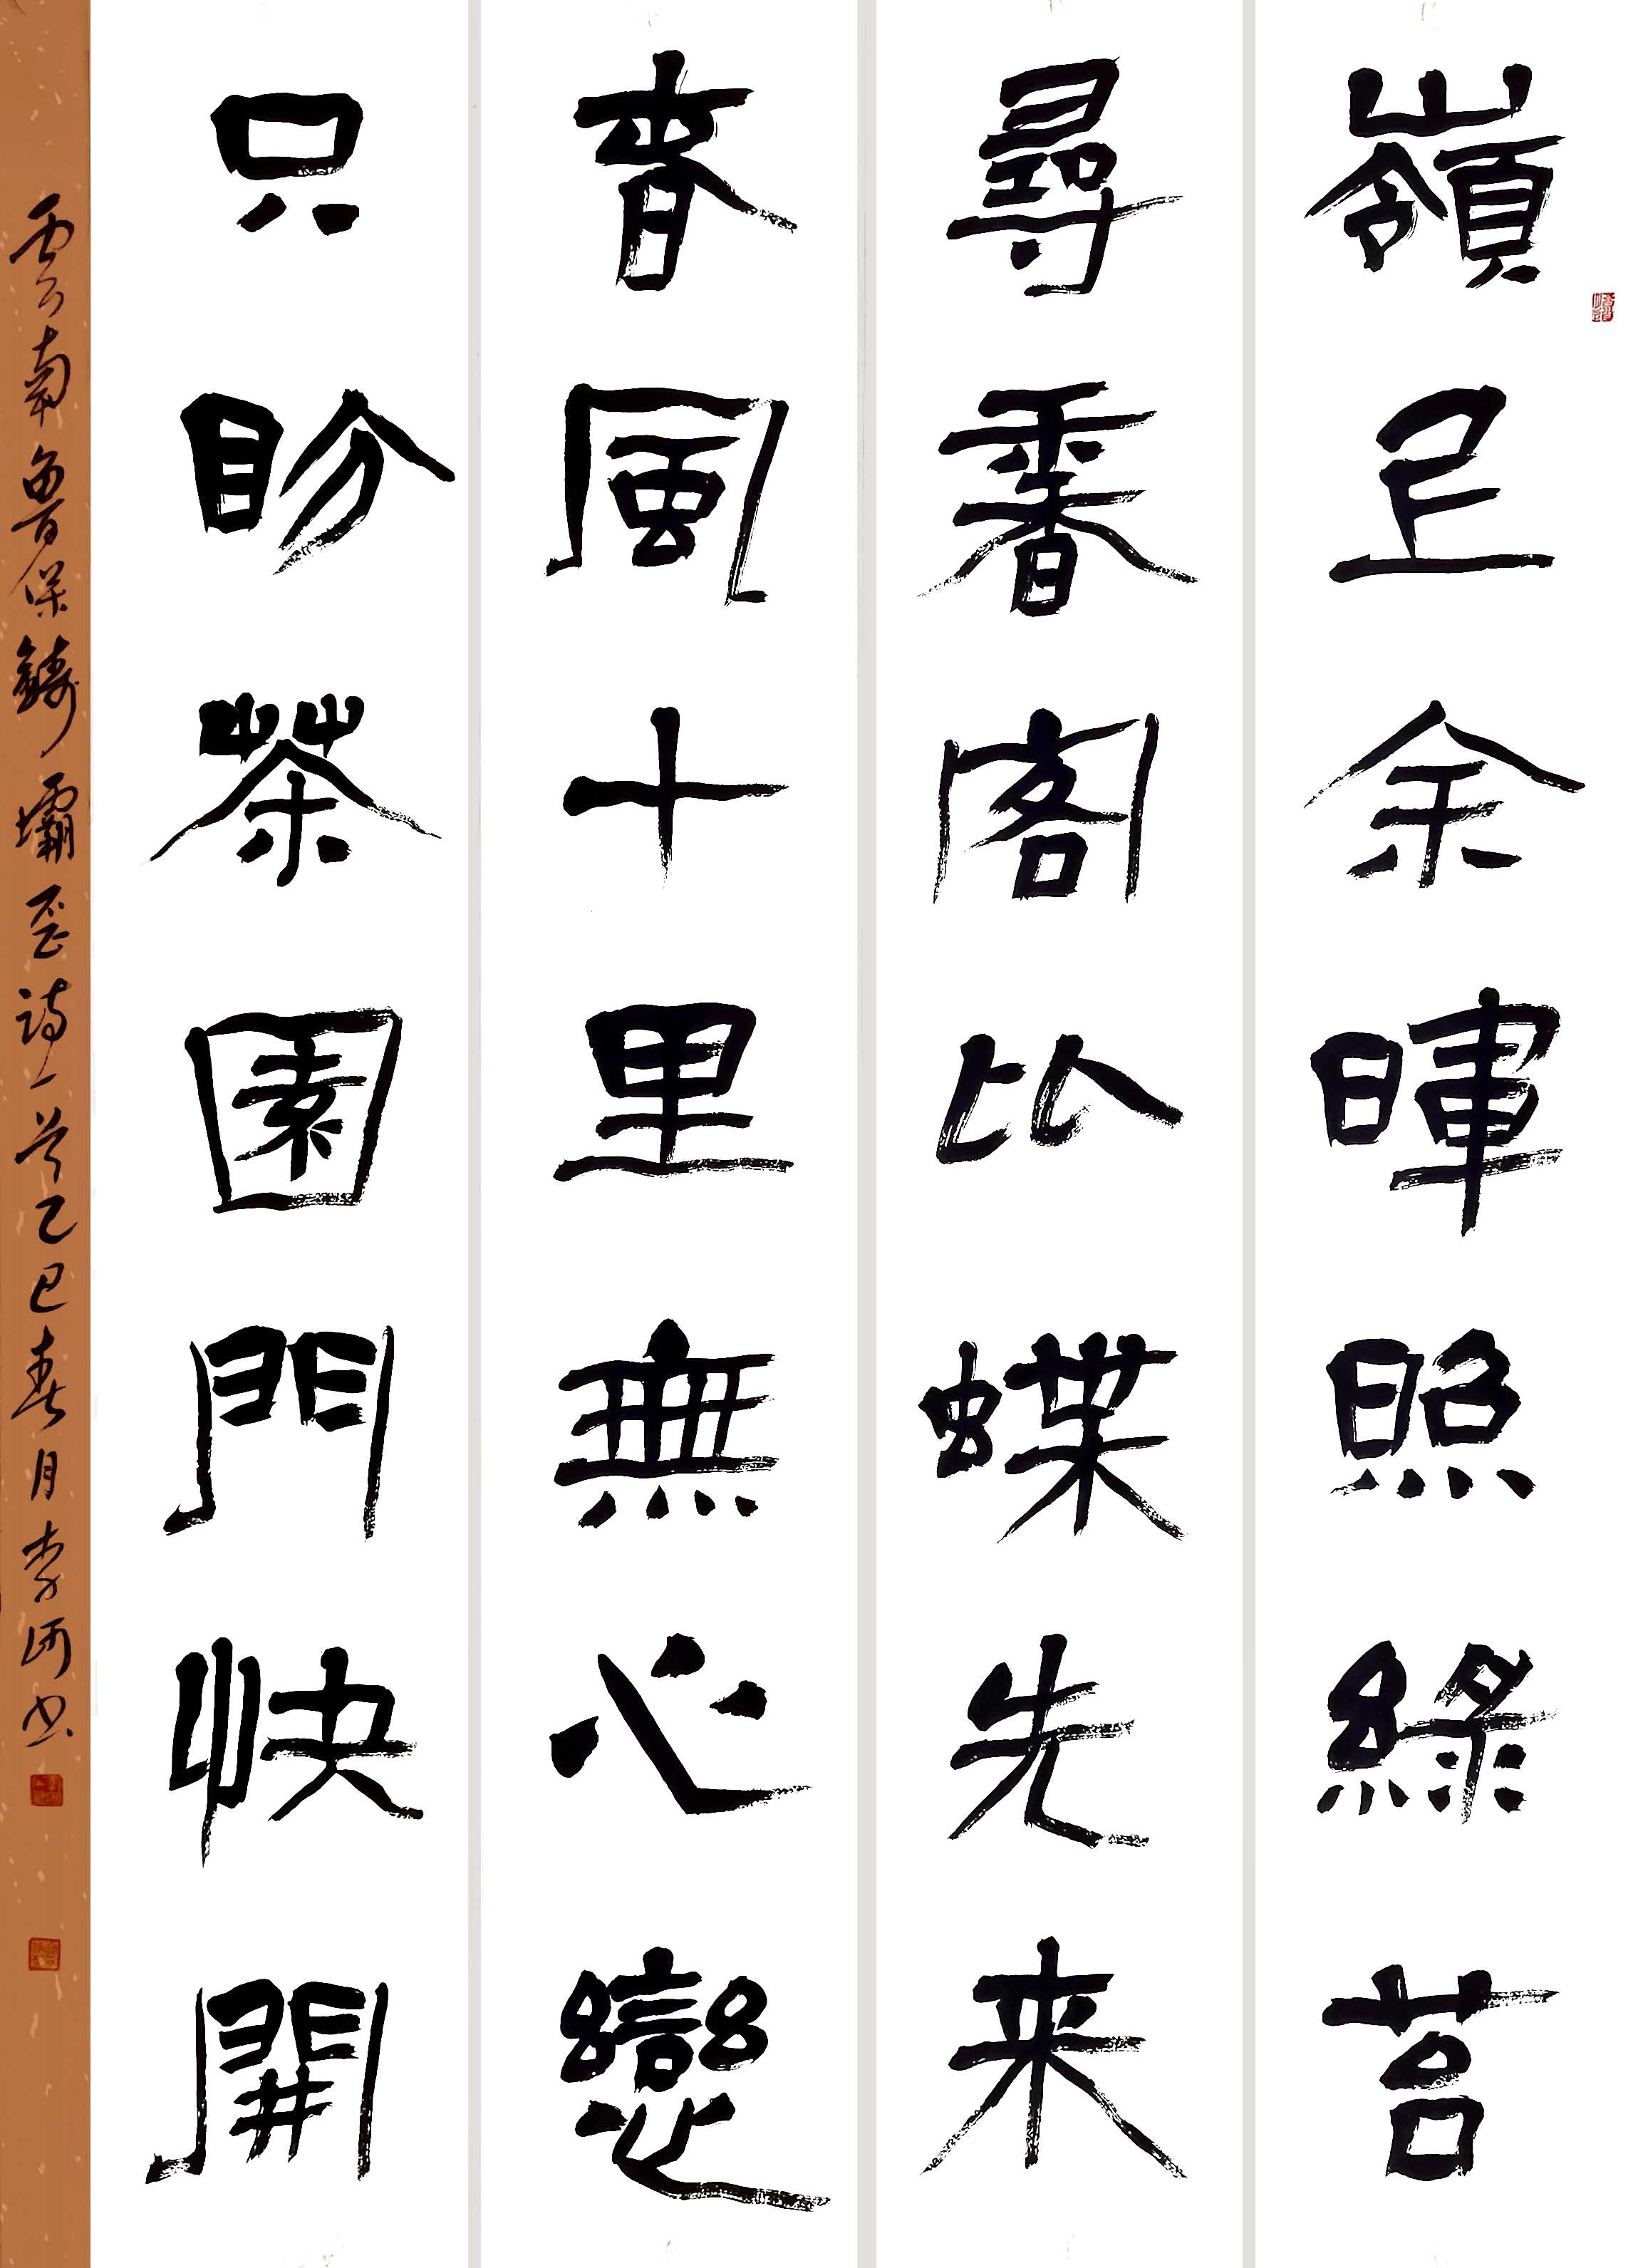 嶺足余暉照綠苔
尋香客比蝶先来
春風十里無心戀
只盼茶園門快開
雲南魯保鑄壩歪诗一首乙巳春月李河书